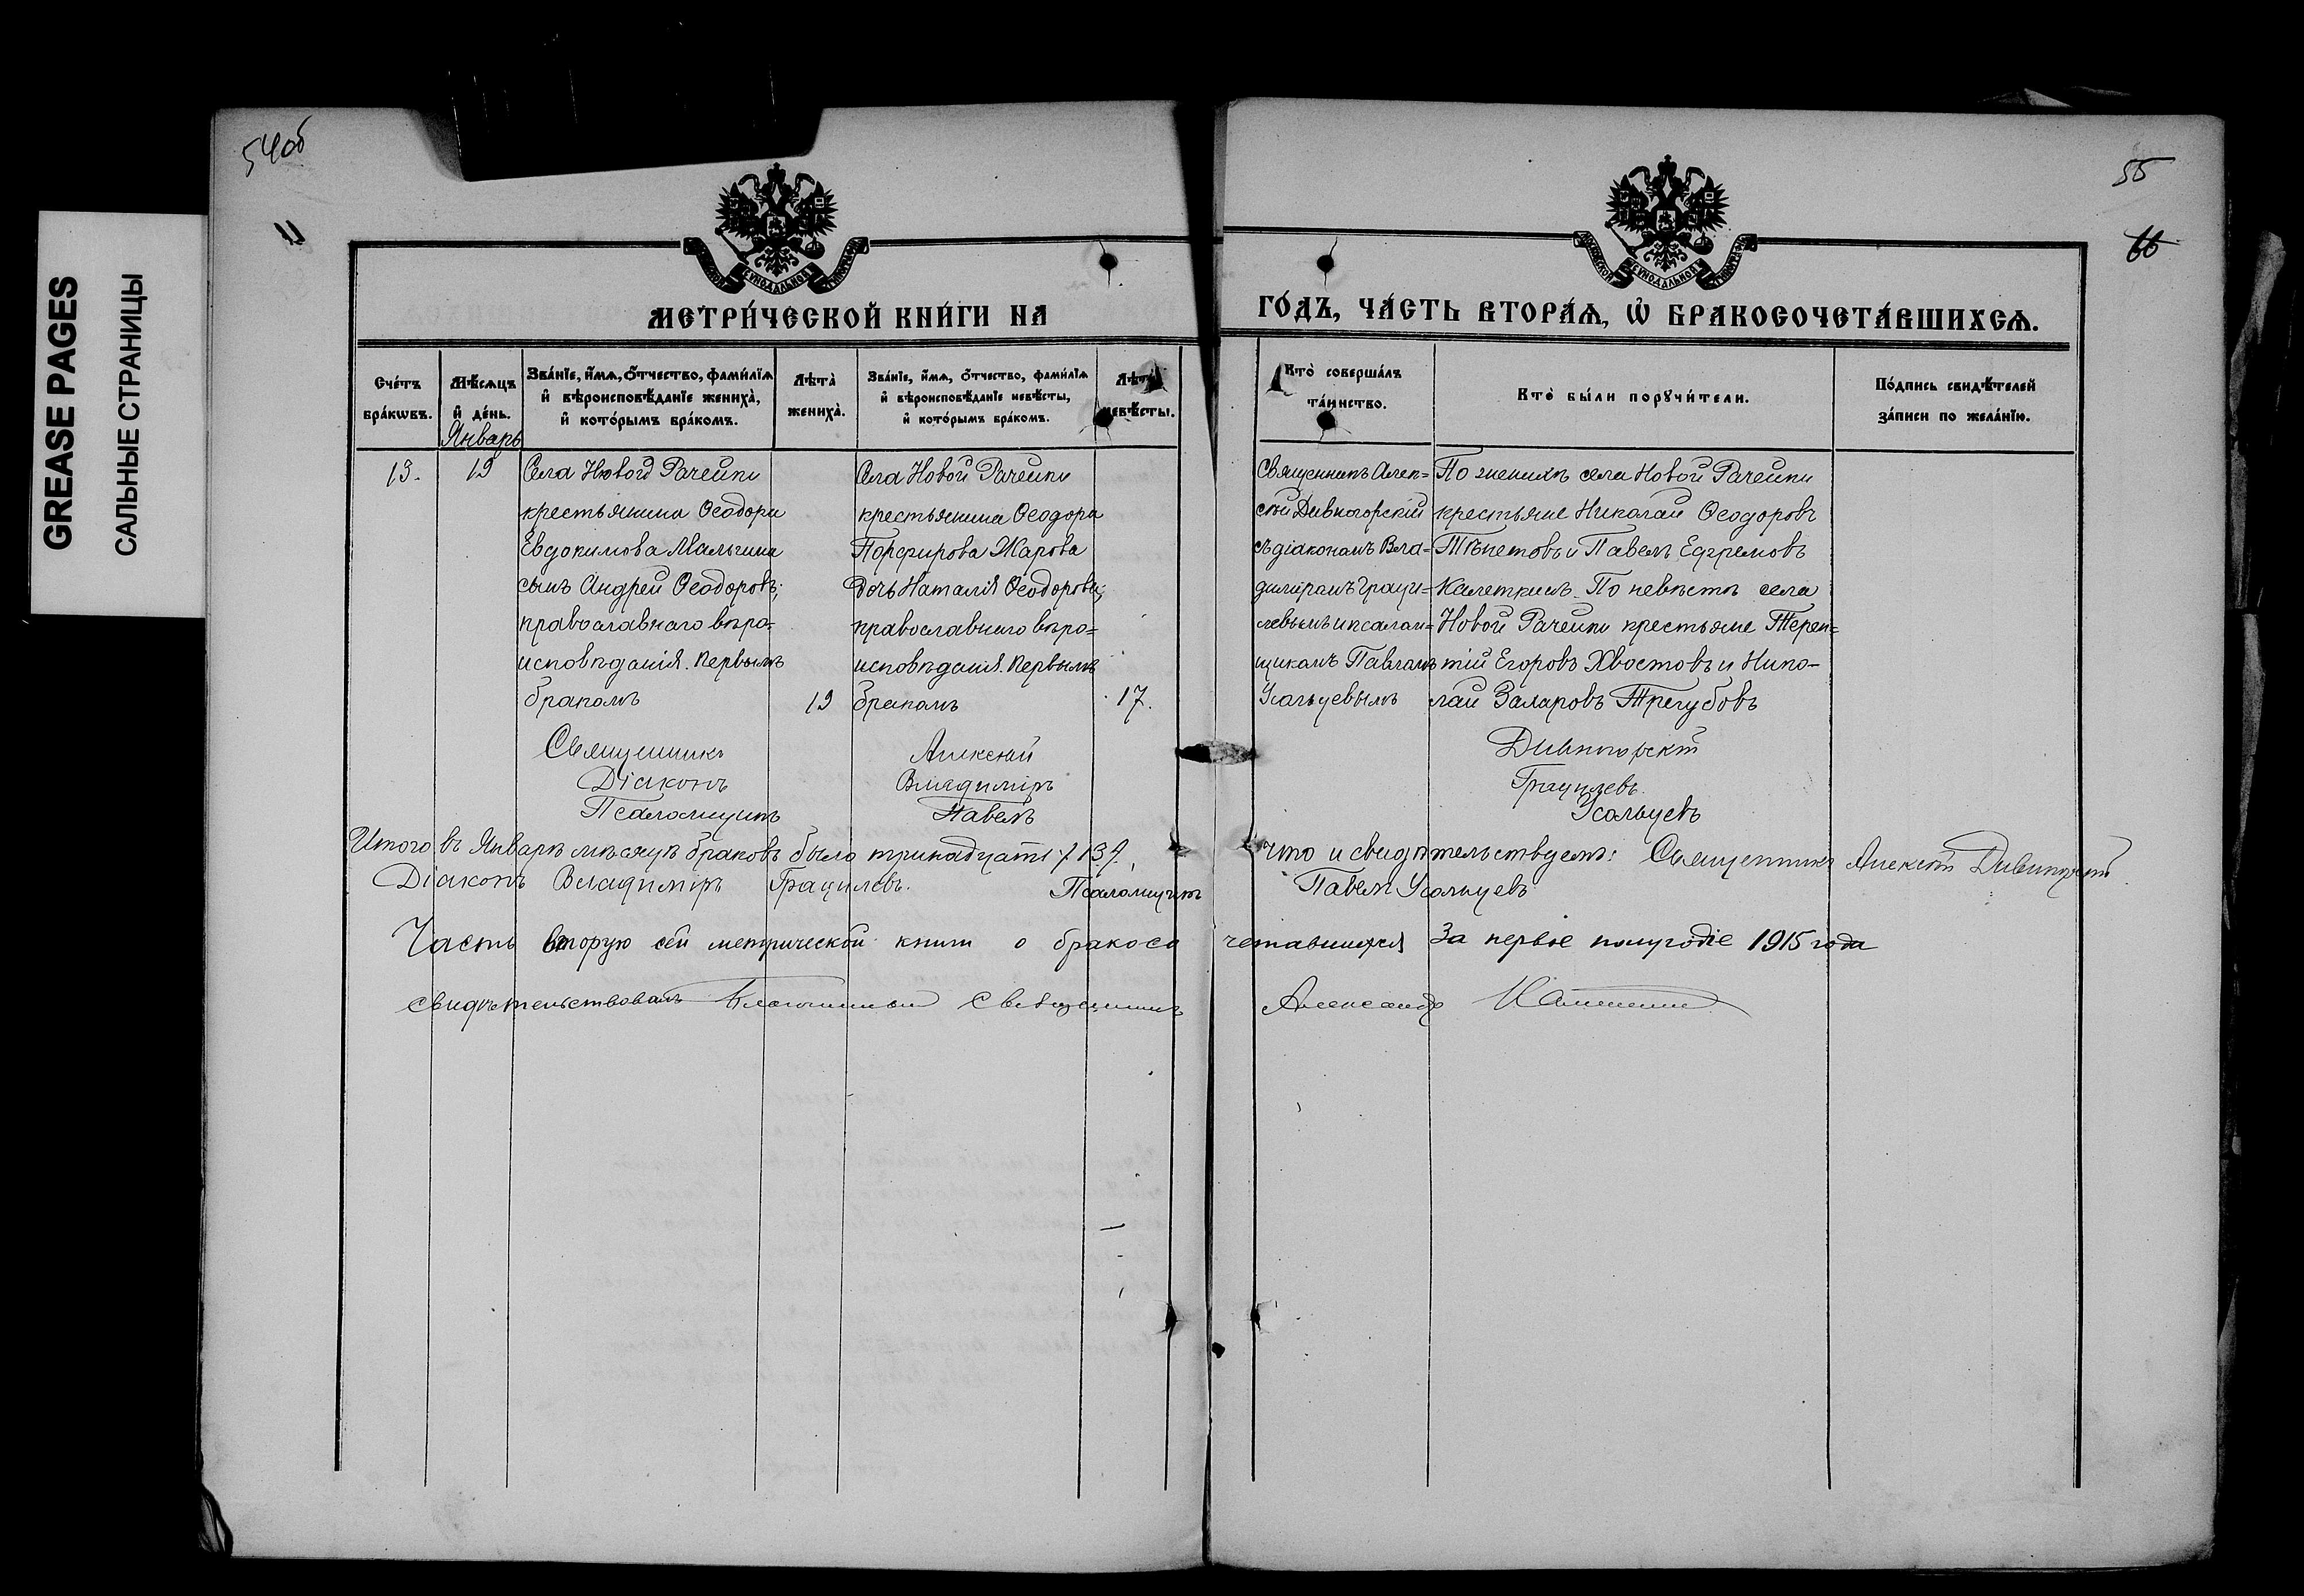 54об
55
11
66
GREASE PAGES
САЛЬНЫЕ СТРАНИЦЫ
МЕТРИ́ЧЕСКОЙ КНИ́ГИ НА
ГО́ДЪ, ЧА́СТЬ ВТОРА́Я, Ѡ БРАКОСОЧЕТА́ВШИХСЯ.
Сче́тъ бра́кѡвъ.
Мѣ́сяцъ и де́нь.
Зва́нїе, и́мя, о́тчество, фами́лїя и вѣроисповѣ́данїе жениха̀, и кото́рымъ бра́комъ.
Лѣ́та жениха̀.
Зва́нїе, и́мя, о́тчество, фами́лїя и вѣроисповѣ́данїе невѣ́сты, и кото́рымъ бра́комъ.
Лѣ́та невѣ́сты.
Кто̀ соверша́лъ та́инство.
Кто̀ бы́ли поручи́тели.
По́дпись свидѣ́телей за́писи по жела́нїю.
Январь
13.
19
Села Новой Рачейки
крестьянина Ѳеодора
Евдокимова Мальгина
сынъ Андрей Ѳеодоровъ;
православнаго вѣро=
исповѣданія. Первымъ
бракомъ
19
Села Новой Рачейки
крестьянина Ѳеодора
Порфирова Жарова
дочь Наталія Ѳеодорова;
православнаго вѣро=
исповѣданія. Первымъ
бракомъ
17.
Священникъ Алек=
сѣй Дивногорскій
съ діакономъ Вла=
диміромъ Граци=
левымъ и псалом=
щикомъ Павломъ
Усольцевымъ
По женихѣ села Новой Рачейки
крестьяне Николай Ѳеодоровъ
и Павелъ Ефремовъ
Калеткинъ. По невѣстѣ села
Новой Рачейки крестьяне Терен=
тій Егоровъ Хвостовъ и Нико-
лай Захаровъ Трегубовъ
Священникъ Алексѣй Дивногорскій
Діаконъ Владиміръ Грацилевъ.
Псаломщикъ Павелъ Усольцевъ
Итого въ Январѣ мѣсяцѣ браковъ было тринадцать /13/. что и свидѣтельствуемъ: Священникъ Алексѣй Дивногорскій
Діаконъ Владиміръ Грацилевъ. Псаломщикъ Павелъ Усольцевъ
Часть вторую сей метрической книги о бракосочетавшихся за первое полугодіе 1915 года
свидѣтельствовалъ Благочинный Священникъ Александръ